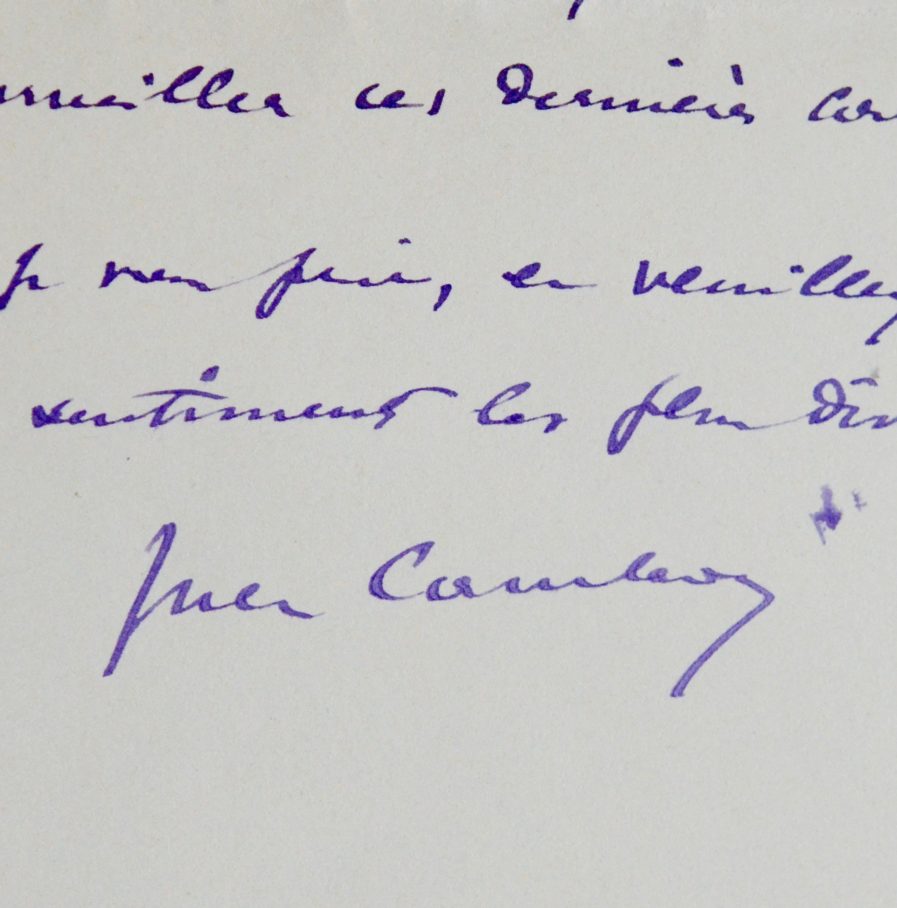 ces derniers
je vous prie, en veuillez
sentiments les plus
Jules Cambon